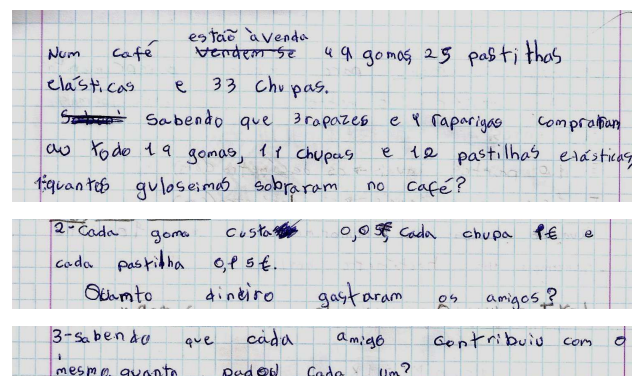 estaõ àvenda
Num café vendem se 49 gomas 25 pastilhas
elásticas e 33 chupas.
Sabendo que 3rapazes e 4 raparigas compraram
ao todo 19 gomas, 11 chupas e 12 pastilhas elásticas,
1:quantas guloseimas sobraram no café?
2-Cada goma custa 0,05€, Cada chupa 1€ e
cada pastilha 0,15€.
Quamto dinheiro gastaram os amigos?
3-sabendo que cada amigo contribuiu com o
mesmo, quanto pagou Cada um?